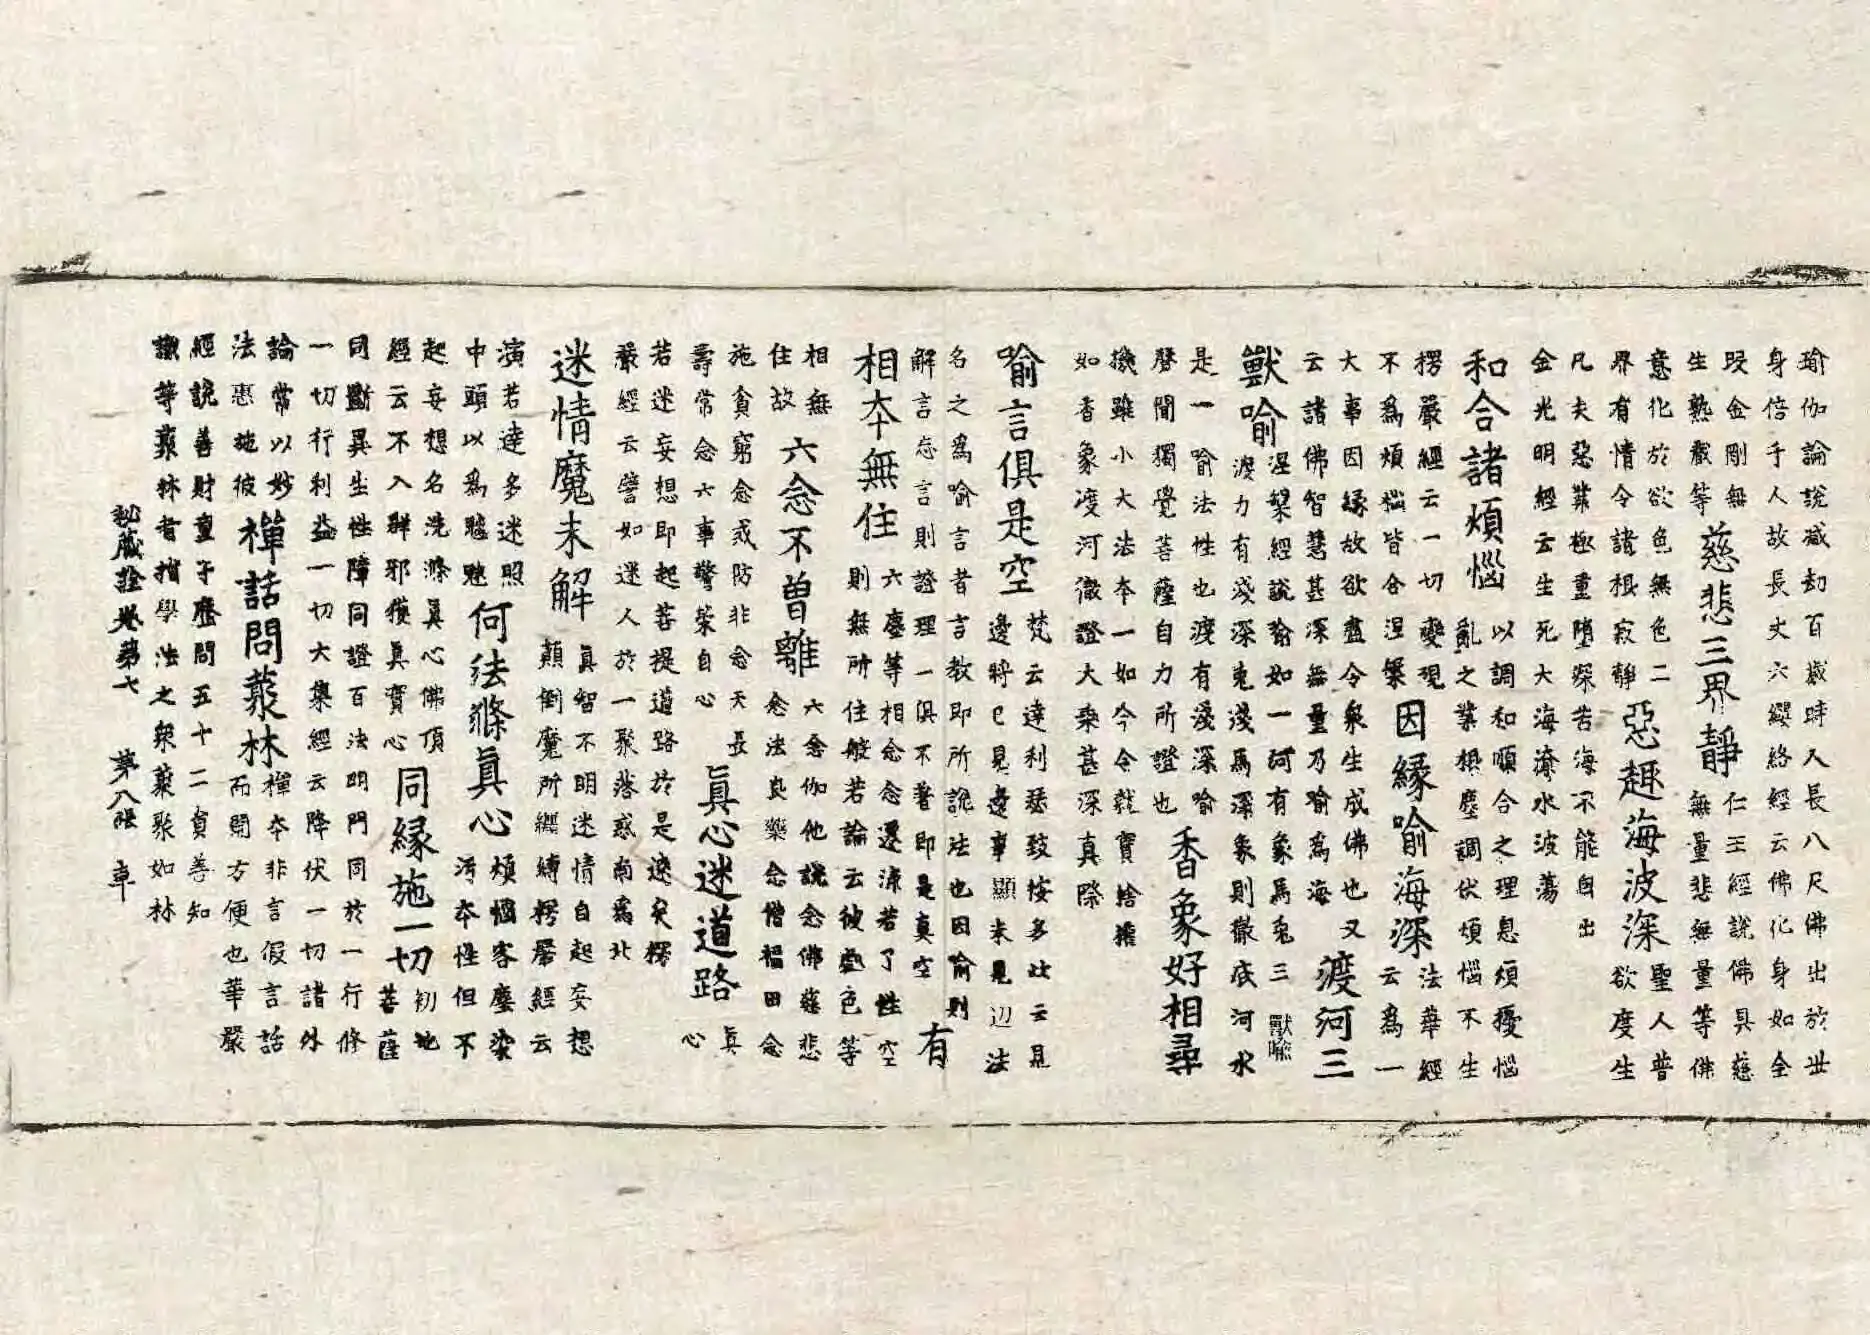 瑜伽論說減劫百歲時人長八尺佛出於世
身倍于人故長丈六纓絡經云佛化身如金
叹金剛無
生熟藏等
慈悲三界靜
仁王經說佛具慈
無量悲無量等佛
意化於欲色無色二
界有情令諸根寂靜
惡趣海波深
聖人普
欲度生
凡夫惡業極重墮深苦海不能自出
金光明經云生死大海濤水波蕩
和合諸煩惱
以調和順合之理息煩擾惱
亂之業根塵調伏煩惱不生
楞嚴經云一切變現
不為煩惱皆合涅槃
因緣喻海深
法華經
云為一
大事因緣故欲盡令衆生成佛也又
云諸佛智慧甚深無量乃喻為海
渡河三
獸喻
涅槃經說喻如一河有象馬兔三獸喻
渡力有淺深兔淺馬深象則徹底河水
是一喻法性也渡有淺深喻
聲聞獨覺菩薩自力所證也
香象好相尋
機雖小大法本一如今令就實捨權
如香象渡河徹證大乘甚深真際
喻言俱是空
梵云達利瑟致按多此云見
邊將已見邊事顯未見边法
名之為喻言者言教即所詮法也因喻則
解言忘言則證理一俱不著即是真空
有
相本無住
六塵等相念念遷流若了性空
則無所住般若論云彼盡色等
相無
住故
六念不曾離
六念伽他說念佛慈悲
念法良藥念僧福田念
施貧窮念戒防非念天長
壽常念六事警策自心
真心迷道路
真
心
若迷妄想即起菩提道路於是迷矣楞
嚴經云譬如迷人於一聚落惑南為北
迷情魔未解
真智不明迷情自起妄想
顛倒魔所纏縛楞嚴經云
演若達多迷照
中頭以為魑魅
何法滌真心
煩惱客塵染
汚本性但不
起妄想名洗滌真心佛頂
經云不入群邪獲真實心
同緣施一切
初地
菩薩
同斷異生性障同證百法明門同於一行修
一切行利益一切大集經云降伏一切諸外
論常以妙
法惠施彼
禪話問叢林
禪本非言假言話
而開方便也華嚴
經說善財童子歷問五十二員善知
識等叢林者指學法之衆叢聚如林
秘藏詮卷第七 第八張 卓